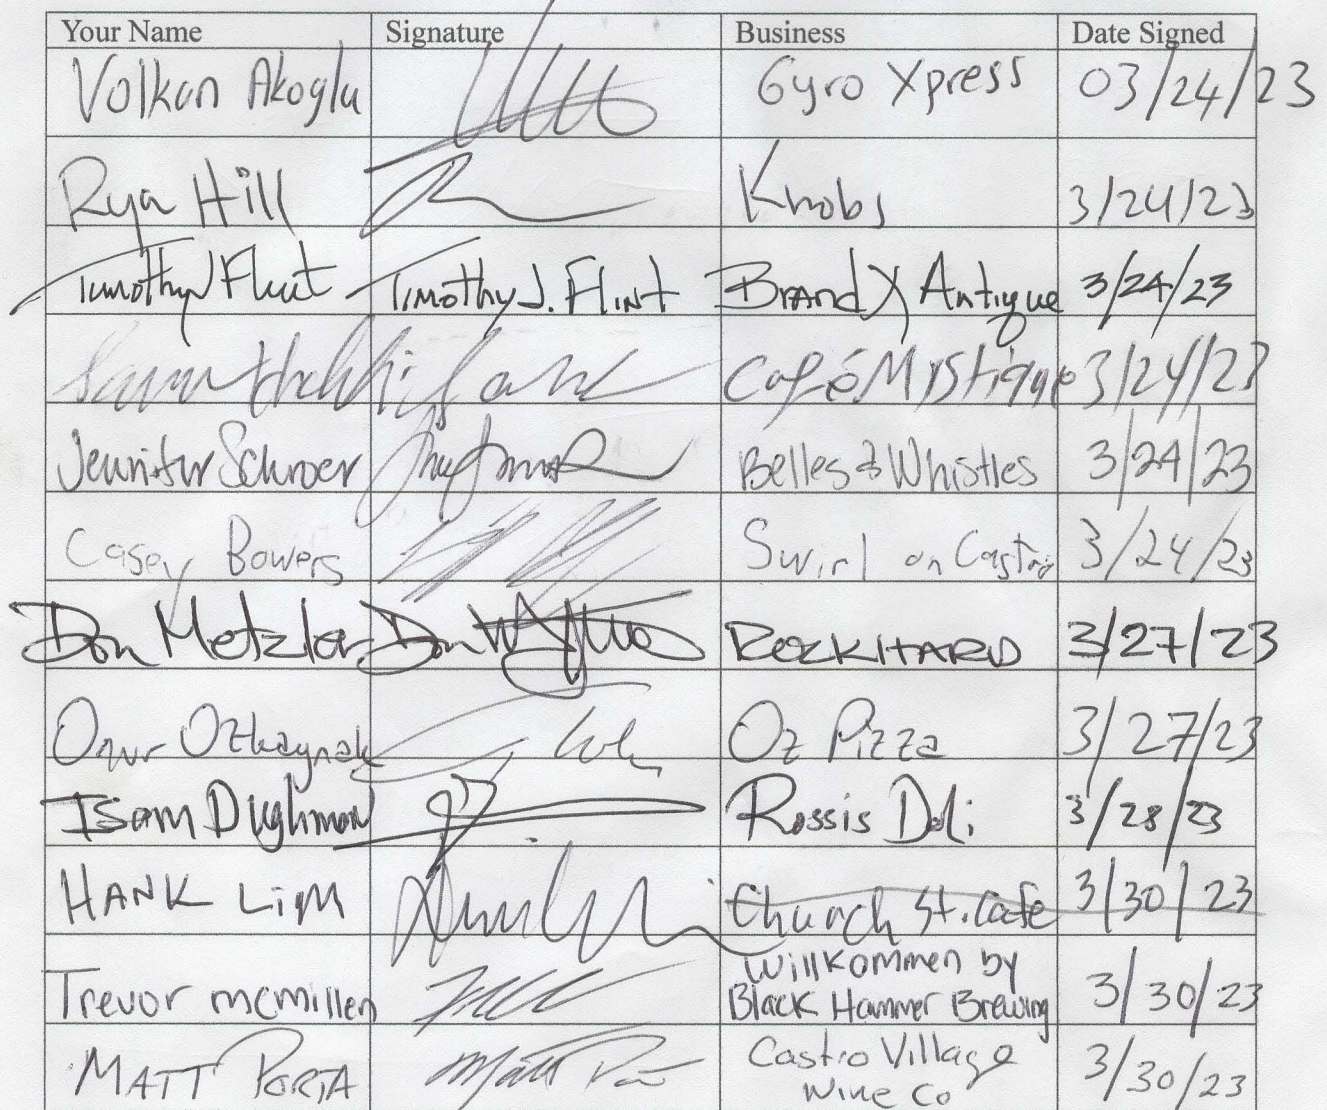 Your Name Signature Business Date Signed
Volkan Akoglu Gyro Xpress 03/24/23
Rya Hill Knobs 3/24/23
Timothy J Flint Timothy J. Flint Brand X Antique 3/24/23
Café Mystique 3/24/23
Jennifer Schroer Belles & Whistles 3/24/23
Casey Bowers Swirl on Castro 3/24/23
Don Metzler Don ROCKHARD 3/27/23
Onur Ozkaynak Oz Pizza 3/27/23
Isam Dughman Rossis Deli 3/28/23
HANK Lim Church St. Cafe 3/30/23
Willkommen by
Trevor mcmillen Black Hammer Brewing 3/30/23
Castro Village
MATT PORTA Matt Wine Co 3/30/23